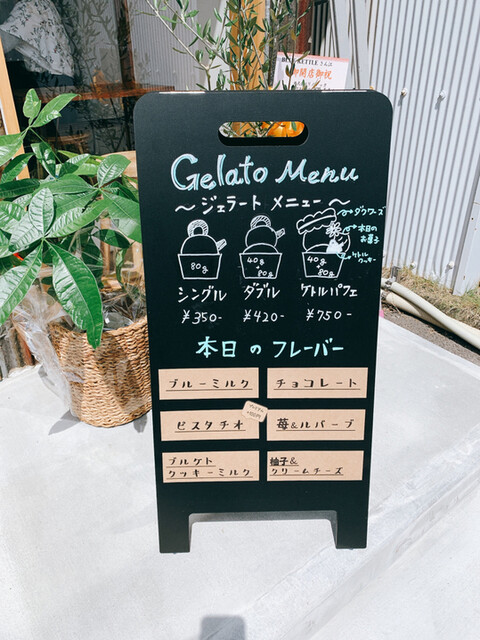 BLUE KETTLE さん江
御開店御祝
Gelato Menu
～ジェラート メニュー～
ダクワーズ
本日の
お菓子
ケトル
クッキー
80g
40g
80g
40g
80g
シングル ダブル ケトルパフェ
¥350- ¥420- ¥750-
本日のフレーバー
ブルーミルク チョコレート
ピスタチオ 苺&ルバーブ
ブルケト
クッキーミルク
柚子&
クリームチーズ